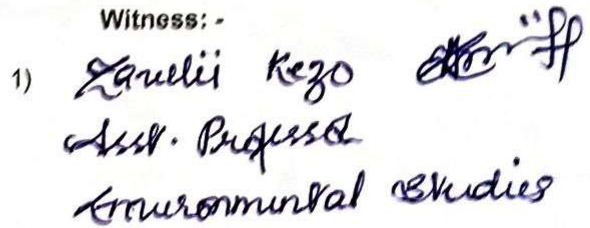 Witness: -
1) Zavelii Kezo
Asst. Professor
Environmental Studies